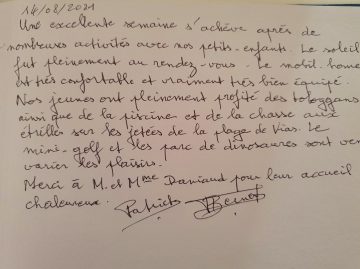 14/08/2021
Une excellente semaine s'achève après de
nombreuses activités avec nos petits-enfants. Le soleil
fut pleinement au rendez-vous. Le mobil-home
est très confortable et vraiment très bien équipé.
Nos jeunes ont pleinement profité des toboggans
ainsi que de la piscine et de la chasse aux
étrilles sur les jetées de la plage de Vias. Le
mini-golf et les parc de dinosaures sont ven
varier les plaisirs.
Merci à M. et Mme Daniaud pour leur accueil
chaleureux. Patrick